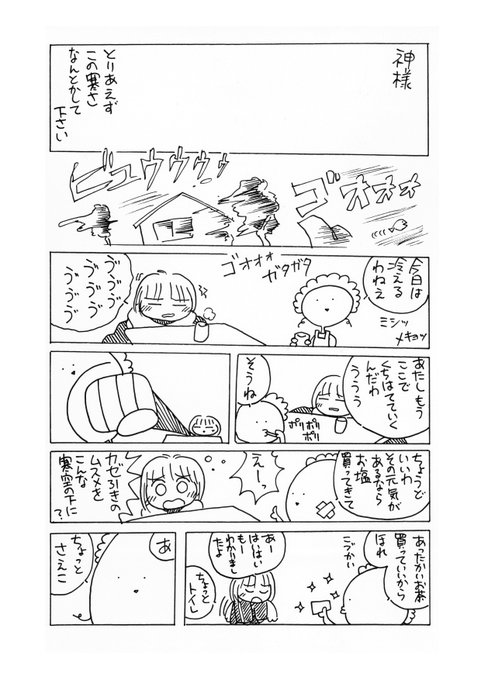 神様
とりあえず
この寒さ
なんとかして
下さい
ゴオオォ
ビュウゥゥゥ
今日は
冷える
わねえ
ミシッ
メキョッ
ゴオオォ
ガタガタ
ゔゔゔ
ゔゔゔ
ゔゔゔ
あたしもう
ここで
くちはてていく
んだわ
ううう
そうね
ポリポリ
ポリ
ちょうど
いいわ
その元気が
あるなら
お塩
買ってきて
えー。
カゼ引きの
ムスメを
こんな
寒空の下に
?
あったかいお茶
買っていいから
ほれ
こづかい
あー
はいはい
もー
わかりまし
たよ
ちょっと
トイレ
あ
ちょっと
さえこ